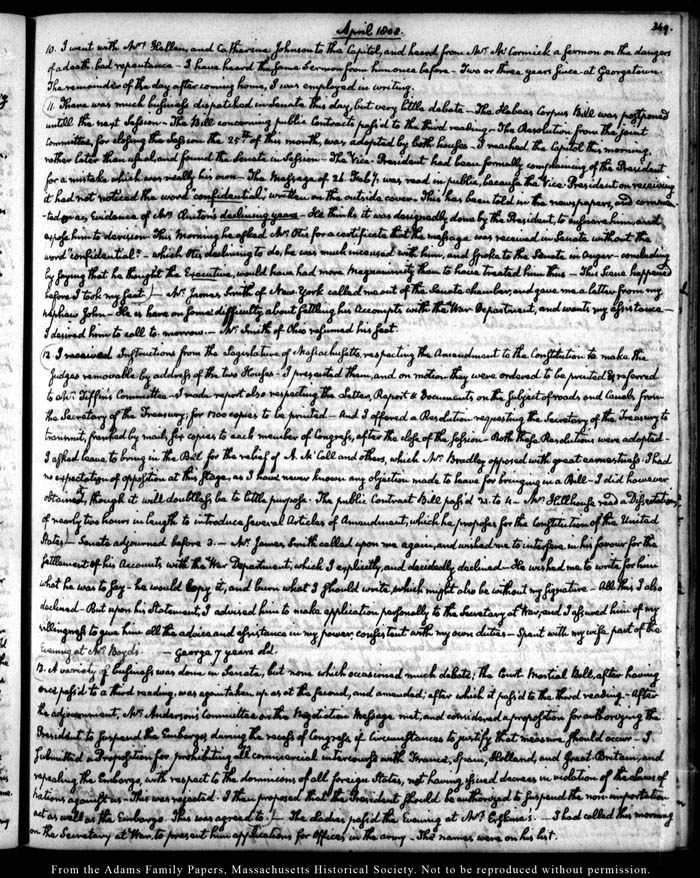 April 1808.
249.
10. I went with Mrs. Hellen, and Catherine Johnson to the Capitol, and heard from Mr. McCormick a sermon on the dangers
of a death-bed repentance - I have heard the same Sermon from him once before - Two or three years since - at Georgetown.
The remainder of the day after coming home, I was employed in writing.
11. There was much business dispatched in Senate this day, but very little debate - The Habeas Corpus Bill was postponed
untill the next Session - The Bill concerning public Contracts pass'd to the third reading - The Resolution from the joint
committee, for closing the Session the 25th of this month, was adopted by both houses - I reached the Capitol this morning
rather later than usual, and found the Senate in Session - The Vice-President had been formally complaining of the President
for a mistake which was really his own - The Message of 26. Feby. was read in public, because the Vice-President on receiving
it had not noticed the word "confidential," written on the outside cover - This has been told in the newspapers, and commen-
-ted on as Evidence of Mr. Clinton's declining years - He thinks it was designedly done by the President, to ensnare him, and
expose him to derision - This morning he asked Mr. Otis for a certificate that the message was received in Senate without the
word "confidential" - which Otis declining to do, he was much incensed with him, and spoke to the Senate in anger - concluding
by saying that he thought the Executive, would have had more Magnanimity than to have treated him thus - This scene happened
before I took my seat - Mr. James Smith of New-York called me out of the Senate chamber, and gave me a letter from my
nephew John - He is here on some difficulty about settling his Accompts with the War Department, and wants my assistance -
I desired him to call to-morrow - Mr. Smith of Ohio resumed his seat.
12. I received Instructions from the Legislature of Massachusetts, respecting the Amendment to the Constitution to make the
Judges removable by address of the two Houses - I presented them, and on motion they were ordered to be printed & referred
to Mr. Tiffin's Committee - I made report also respecting the Letter, Report & Documents on the subject of roads and Canals from
the Secretary of the Treasury; for 1200 copies to be printed - And I offered a Resolution requesting the Secretary of the Treasury to
transmit, franked by mail, six copies to each member of Congress, after the close of the session - Both these Resolutions were adopted -
I asked leave to bring in the Bill for the relief of A. McCall and others, which Mr. Bradley opposed with great earnestness - I had
no expectation of opposition at this stage, as I have never known any objection made to leave for bringing in a Bill - I did however
obtain it, though it will doubtless be to little purpose. The public Contract Bill pass'd 21. to 4 - Mr. Hillhouse read a Dissertation
of nearly two hours in length to introduce several Articles of Amendment, which he proposes for the Constitution of the United
States - Senate adjourned before 3. - Mr. James Smith called upon me again, and wished me to interfere in his favour for the
settlement of his Accounts, with the War Department, which I explicitly, and decidedly, declined - He wished me to write for him
what he was to say - he would copy it, and burn what I should write, which might also be without my signature - All this I also
declined - But upon his Statement, I advised him to make application personally to the Secretary at War, and I assured him of my
willingness to give him all the advice and assistance in my power consistent with my own duties - Spent with my wife part of the
Evening at Mr. Boyd's. - George 7 years old.
13. A variety of business was done in Senate, but none which occasioned much debate; the Court Martial Bill, after having
once pass'd to a third reading, was again taken up as at the second, and amended; after which it pass'd to the third reading. - After
the adjournment, Mr. Anderson's Committee on the Negotiation Message met, and considered a proposition for authorizing the
President to suspend the Embargo, during the recess of Congress if circumstances to justify that measure should occur - I
submitted a Proposition for prohibiting all commercial intercourse with France, Spain, Holland, and Great-Britain, and
repealing the Embargo, with respect to the dominions of all foreign States, not having issued decrees in violation of the laws of
nations against us - This was rejected. I then proposed that the President should be authorized to suspend the non-importation
act as well as the Embargo. This was agreed to. - The ladies pass'd the evening at Mr. Erskine's. - I had called this morning
on the Secretary at War, to present him applications for Offices in the army - The names were on his list.
From the Adams Family Papers, Massachusetts Historical Society. Not to be reproduced without permission.